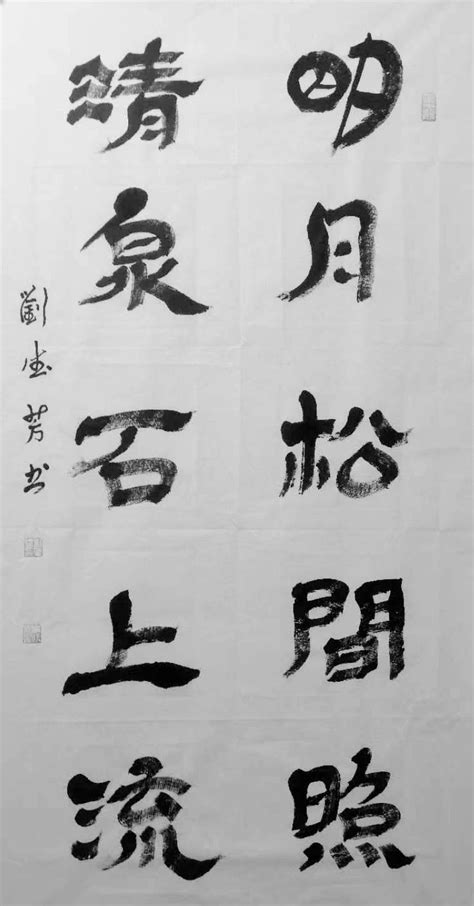 明月松間照
清泉石上流
劉芳书